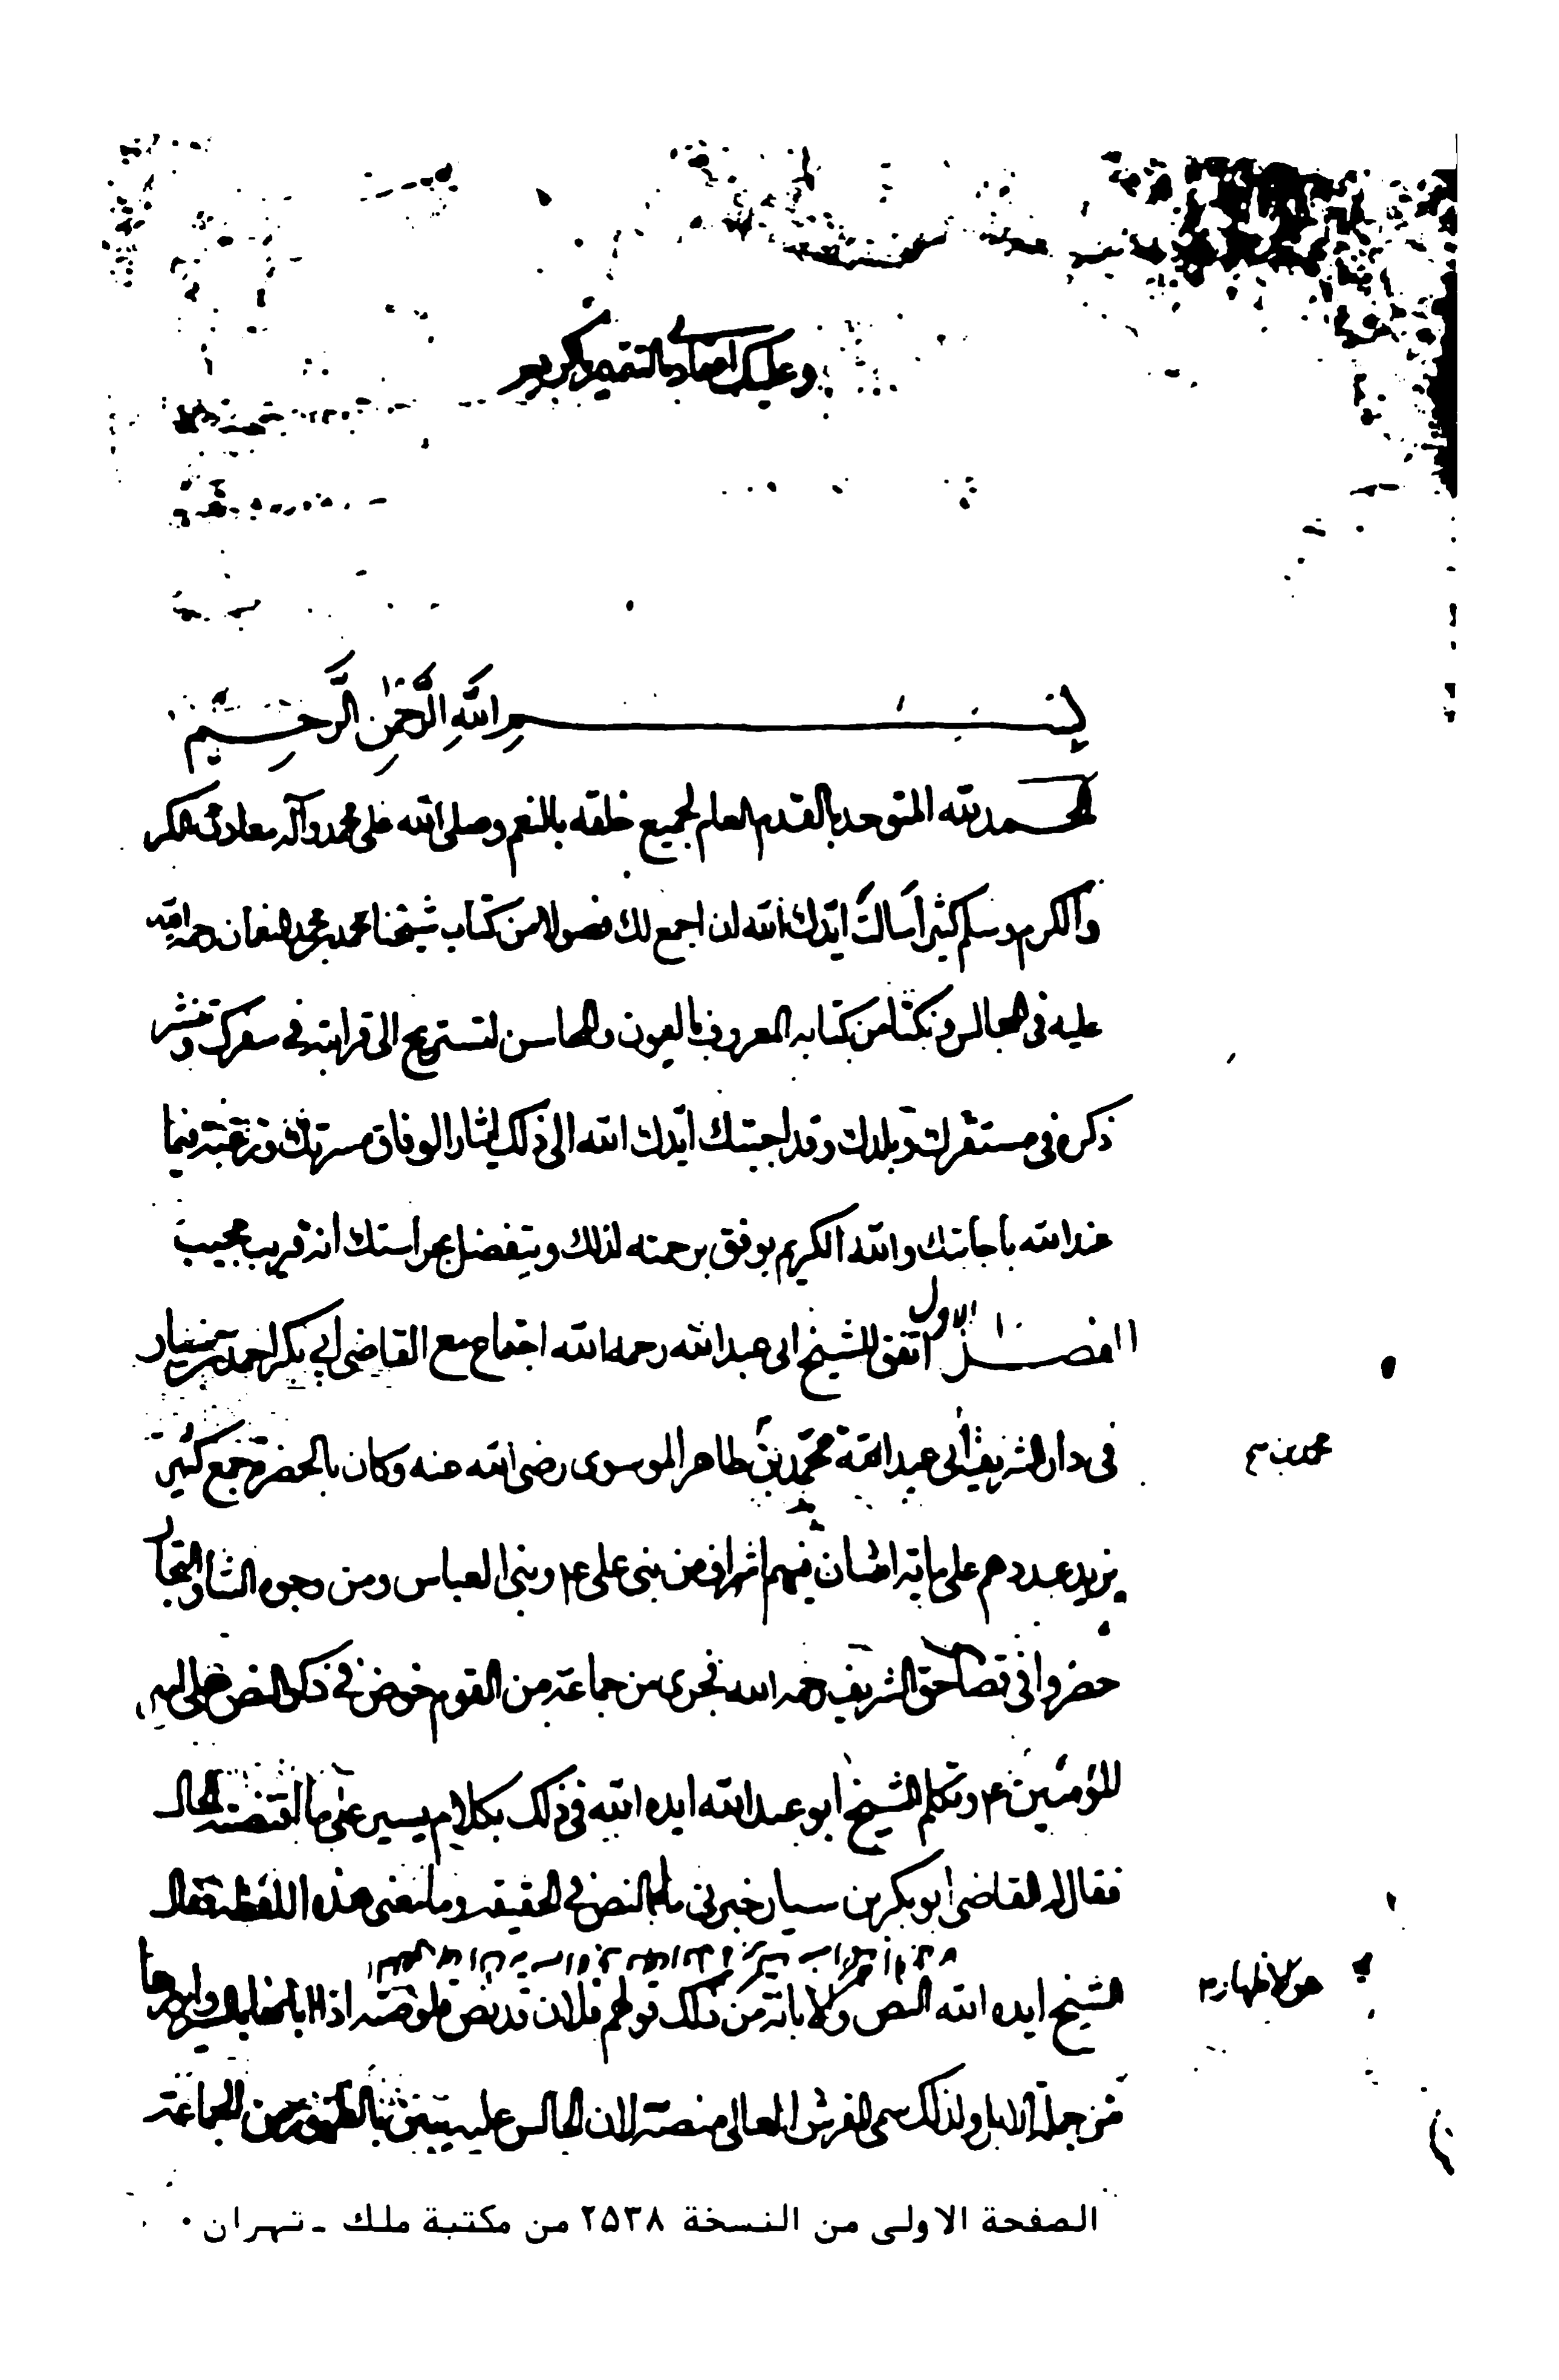 وعليك اعتمادي بالتتميم يا كريم
بسم الله الرحمن الرحيم
الحمد لله المتوحد بالقدم العام لجميع خلقه بالنعم وصلى الله على محمد وآله معادن الحكم
والكرم وسلم كثيرا سالت ايدك الله ان اجمع لك فصولا من كتاب شيخنا محمد بن محمد النعمان رحمة الله
عليه في المجالس ونكتا من كتابه المعروف بالعيون والمحاسن لتستريح الى قرائته في سفرك وتنشر
ذكره في مستقرك وبلدك وقد اجبتك ايدك الله الى ذلك ايثارا لوفاق مسرتك ورغبة فيما
عند الله باجابتك والله الكريم يوفق برحمته لذلك ويتفضل بحراستك انه قريب مجيب
الفصل الاول اتفق للشيخ ابى عبد الله رحمه الله اجتماع مع القاضى ابي بكر احمد بن سيار
فى دار الشريف ابى عبد الله محمد بن طاهر الموسوى رضى الله عنه وكان بالحضرة جمع كثير
محمد بن م
يزيد عددهم على ماية انسان فيهم اشراف من بنى على ع وبنى العباس ومن وجوه الناس والتجار
حضروا فى قضاء حق الشريف رحمه الله فجرى من جماعة من القوم خوض في ذكر النص على امير
المؤمنين ع وتكلم الشيخ ابو عبد الله ايده الله فى ذلك بكلام يسير على ما اقتضته الحال
فقال له القاضى ابو بكر بن سيار خبرنى ما النص فى الحقيقه وما معنى هذه اللفظة فقال
الشيخ ايده الله النص هو الابانة من ذلك قولهم فلان قد نص قلوصه اذا ابانها بالسير وابرزها
هو الاظهار م
من جملة الابل ولذلك سمى الفرش العالى منصة لان الجالس عليه يبين بالظهور من الجماعة
الصفحة الاولى من النسخة ٢٥٣٨ من مكتبة ملك ـ تهران ٠